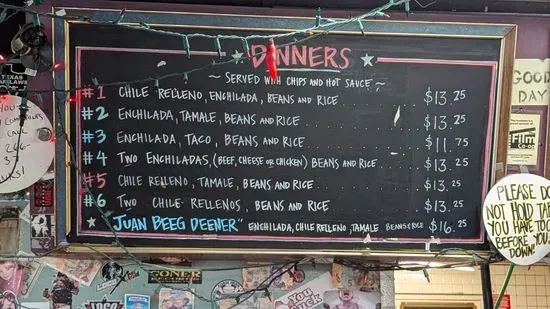 DINNERS
~ SERVED WITH CHIPS AND HOT SAUCE ~
#1 CHILE RELLENO, ENCHILADA, BEANS AND RICE $13.25
#2 ENCHILADA, TAMALE, BEANS AND RICE $13.25
#3 ENCHILADA, TACO, BEANS AND RICE $11.75
#4 TWO ENCHILADAS, (BEEF, CHEESE OR CHICKEN) BEANS AND RICE $13.25
#5 CHILE RELLENO, TAMALE, BEANS AND RICE $13.25
#6 TWO CHILE RELLENOS, BEANS AND RICE $13.25
"JUAN BEEG DEENER" ENCHILADA, CHILE RELLENO, TAMALE BEANS & RICE $16.25
GOOD
DAY
Film
CO-OP
PLEASE DO
NOT HOLD TA
YOU HAVE TO
BEFORE YOU
DOWN
TEXAS
GONER
RECORDS
LOCO
YOU